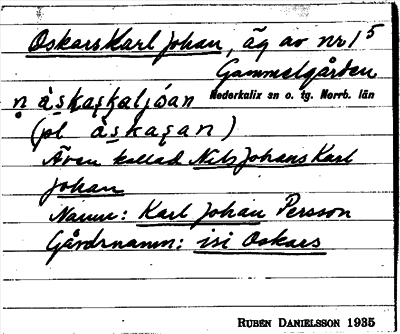 Oskars Karl Johan, äg av nr 1⁵
Gammelgården
Nederkalix sn o. tg. Norrb. län
n åskaʂkaljóan
(pl åskaʂan)
Även kallad Nils Johans Karl
Johan
Namn: Karl Johan Persson
Gårdsnamn: isi Oskars
RUBEN DANIELSSON 1935